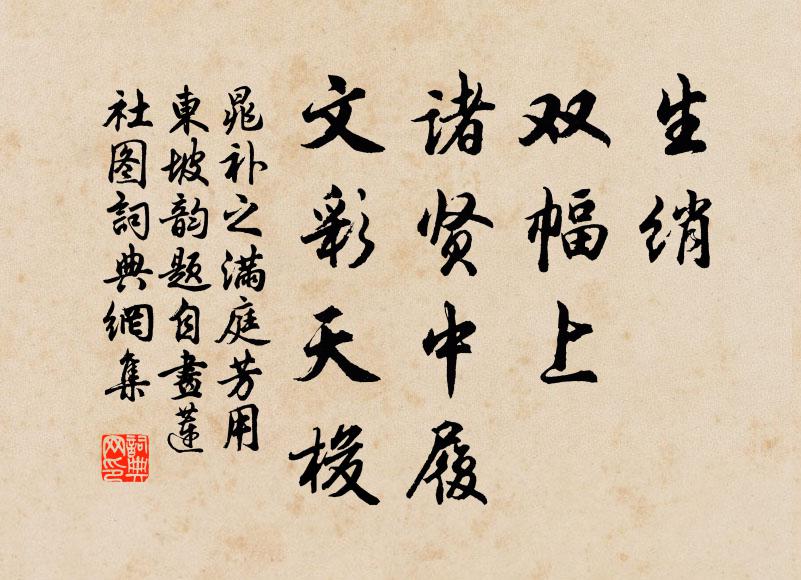 生绡
双幅上
诸贤中履
文彩天梭
晁补之满庭芳用
東坡韵题自畫莲
社图詞典網集
詞典网印